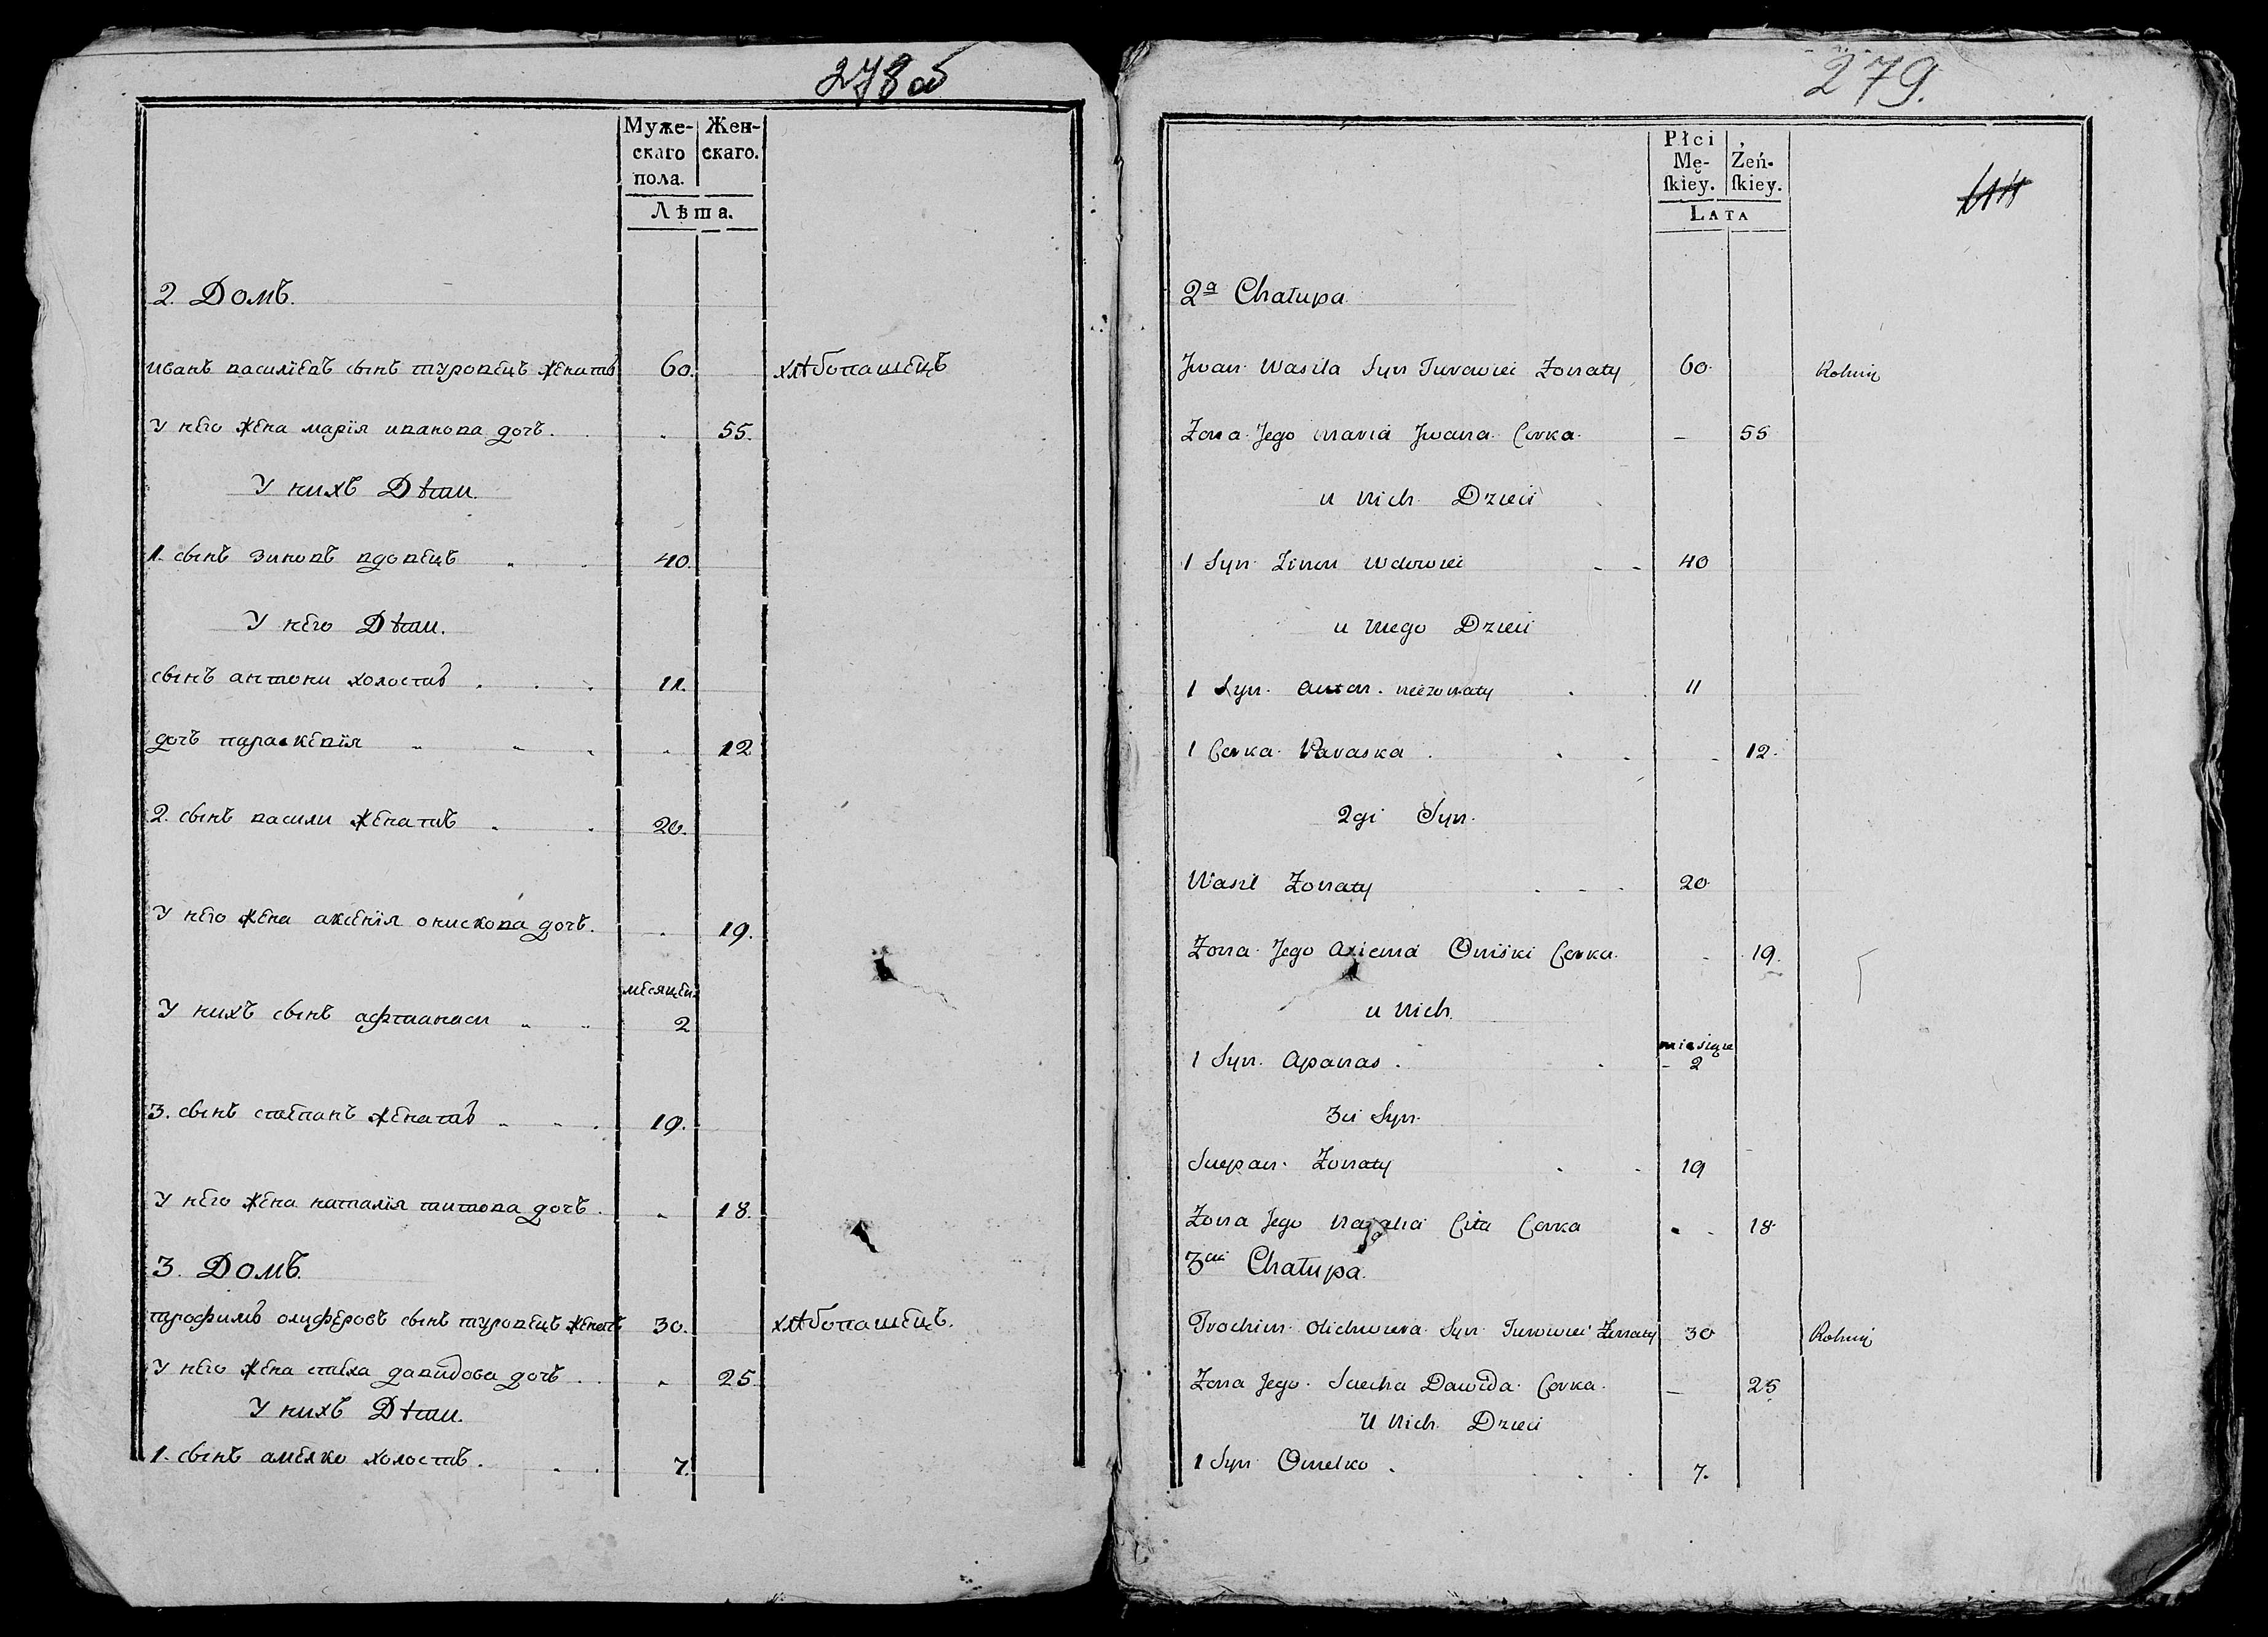 278 об
Муже-скаго пола. Жен-скаго.
Лѣта.
2. Домъ.
иванъ василіевъ сынъ туровецъ женатъ 60. хлѣбопашецъ
У него жена марія иванова дочъ. 55.
У нихъ Дѣти.
1. сынъ зиновъ вдовецъ 40.
У него Дѣти.
сынъ антони холостъ 11.
дочъ параскевія 12
2. сынъ васили женатъ 20.
У него жена аксенія онискова дочъ. 19.
месяцей
У нихъ сынъ афтанаси 2
3. сынъ степанъ женатъ 19.
У него жена наталія титова дочъ. 18.
3. Домъ.
трофимъ олиферовъ сынъ туровецъ женатъ 30. хлѣбопашецъ.
У него жена стеха давидова дочъ 25
У нихъ Дѣти.
1. сынъ амелко холостъ. 7.
279.
Płci Mę-ſkiey. Żeń-ſkiey.
Lata
2ª Chałupa
Jwan Wasila Syn Turowiec Żonaty 60 Rolnik
Żona Jego maria Jwana Corka 55
u Nich Dzieci
1 Syn Zinon Wdowiec 40
u Niego Dzieci
1 Syn Anton nieżonaty 11
1 Corka Paraska 12
2gi Syn
Wasil Żonaty 20
Żona Jego Axienia Oniśki Corka 19.
u Nich
miesiące
1 Syn Apanas 2
3ci Syn
Sciepan Żonaty 19
Żona Jego Natalia Cita Corka 18
3cia Chałupa
Trochim Olichwiera Syn Turowiec Żonaty 30 Rolnik
Żona Jego Sciecha Dawida Corka 25
U Nich Dzieci
1 Syn Omelko 7.